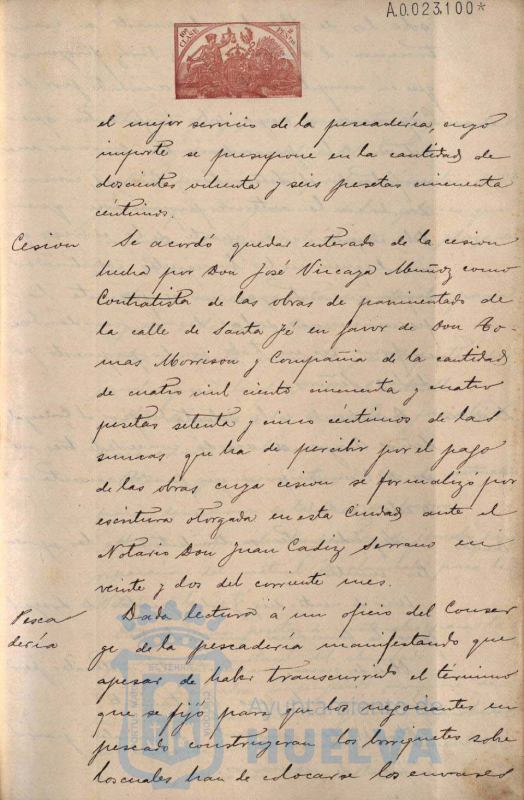 A.0.023.100*
10ª CLASE
2 PESETAS
el mejor servicio de la pescadería, cuyo
importe se presupone en la cantidad de
doscientes ochenta y seis pesetas cincuenta
céntimos.
Cesion
Se acordó quedar enterado de la cesion
hecha por Don José Vizcaya Muñoz como
Contratista de las obras de pavimentado de
la calle de Santa Fé en favor de Don To-
mas Morrison y Compañia de la cantidad
de cuatro mil ciento cincuenta y cuatro
pesetas setenta y cinco céntimos de las
sumas que ha de percibir por el pago
de las obras cuya cesion se formalizó por
escritura otorgada en esta Ciudad ante el
Notario Don Juan Cadiz Serrano en
veinte y dos del corriente mes.
Pesca
dería
Dada lectura á un oficio del Conser
ge de la pescadería manifestando que
apesar de haber transcurrido el término
que se fijó para que los negociantes en
pescado construyeran los borriquetes sobre
los cuales han de colocarse los envases
Ayuntamiento de
HUELVA